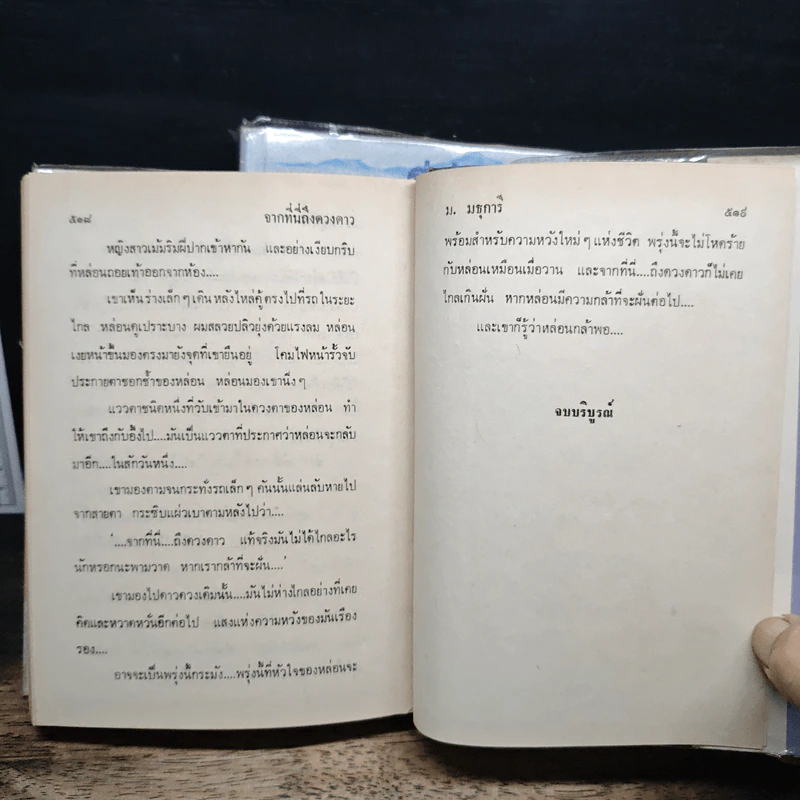 ๕๑๘ จากที่นี่ถึงดวงดาว
หญิงสาวเม้มริมฝีปากเข้าหากัน และอย่างเงียบกริบ
ที่หล่อนถอยเท้าออกจากห้อง....
เขาเห็นร่างเล็กๆ เดินหลังไหล่คู้ตรงไปที่รถในระยะ
ไกล หล่อนดูเปราะบาง ผมสลวยปลิวยุ่งด้วยแรงลม หล่อน
เงยหน้าขึ้นมองตรงมายังจุดที่เขายืนอยู่ โคมไฟหน้ารั้วจับ
ประกายตาชอกช้ำของหล่อน หล่อนมองเขานิ่งๆ
แววตาชนิดหนึ่งที่วับเข้ามาในดวงตาของหล่อน ทำ
ให้เขาถึงกับอึ้งไป....มันเป็นแววตาที่ประกาศว่าหล่อนจะกลับ
มาอีก....ในสักวันหนึ่ง....
เขามองตามจนกระทั่งรถเล็กๆ คันนั้นแล่นลับหายไป
จากสายตา กระซิบแผ่วเบาตามหลังไปว่า....
'....จากที่นี่....ถึงดวงดาว แท้จริงมันไม่ได้ไกลอะไร
นักหรอกนะพามวาด หากเรากล้าที่จะฝัน....'
เขามองไปดาวดวงเดิมนั้น....มันไม่ห่างไกลอย่างที่เคย
คิดและหวาดหวั่นอีกต่อไป แสงแห่งความหวังของมันเรือง
รอง....
อาจจะเป็นพรุ่งนี้กระมัง....พรุ่งนี้ที่หัวใจของหล่อนจะ
ม. มธุการี ๕๑๙
พร้อมสำหรับความหวังใหม่ๆ แห่งชีวิต พรุ่งนี้จะไม่โหดร้าย
กับหล่อนเหมือนเมื่อวาน และจากที่นี่....ถึงดวงดาวก็ไม่เคย
ไกลเกินฝัน หากหล่อนมีความกล้าที่จะฝันต่อไป....
และเขาก็รู้ว่าหล่อนกล้าพอ....
จบบริบูรณ์